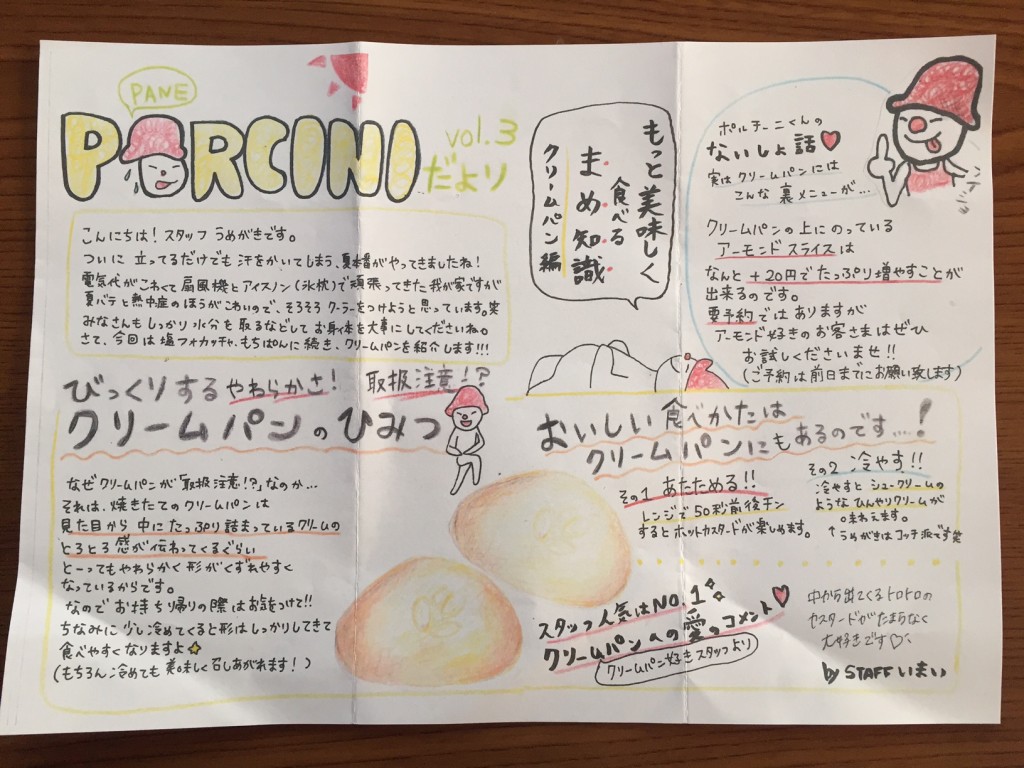 PANE
PORCINI
vol.3
だより
こんにちは!スタッフ うめがきです。
ついに 立ってるだけでも 汗をかいてしまう、夏本番がやってきましたね!
電気代がこわくて 扇風機とアイスノン(氷枕)で頑張ってきた我が家ですが
夏バテと熱中症のほうがこわいので、そろそろ クーラーをつけようと思っています。笑
みなさんも しっかり 水分を 取るなどして お身体を大事にしてくださいね。
さて、今回は 塩フォカッチャ、もちぱんに続き、クリームパンを紹介します!!!
びっくりする やわらかさ! 取扱注意!?
クリームパンのひみつ
なぜクリームパンが「取扱注意!?」なのか…
それは、焼きたてのクリームパンは
見た目から 中にたっぷり詰まっているクリームの
とろとろ感が伝わってくるぐらい
とーってもやわらかく 形がくずれやすく
なっているからです。
なので お持ち帰りの際はお気をつけて!!
ちなみに 少し冷めてくると形はしっかりしてきて
食べやすくなりますよ
(もちろん冷めても 美味しく召しあがれます!)
もっと美味しく
食べる
まめ知識
クリームパン編
ポルチーニくんの
ないしょ話
実はクリームパンには
こんな 裏メニューが…
クリームパンの上にのっている
アーモンドスライスは
なんと +20円でたっぷり増やすことが
出来るのです。
要予約ではありますが
アーモンド好きのお客さまはぜひ
お試しくださいませ!!
(ご予約は前日までにお願い致します)
おいしい食べかたは
クリームパンにもあるのです…!
その1 あたためる!!
レンジで50秒前後チン
するとホットカスタードが楽しめます。
その2 冷やす!!
冷やすと シュークリームの
ような ひんやりクリームが
味わえます。
↑うめがきはコッチ派です笑
スタッフ人気はNO.1
クリームパンへの愛のコメント
クリームパン好きスタッフより
中から出てくるトロトロの
カスタードがたまらなく
大好きです♡
by STAFF いまい